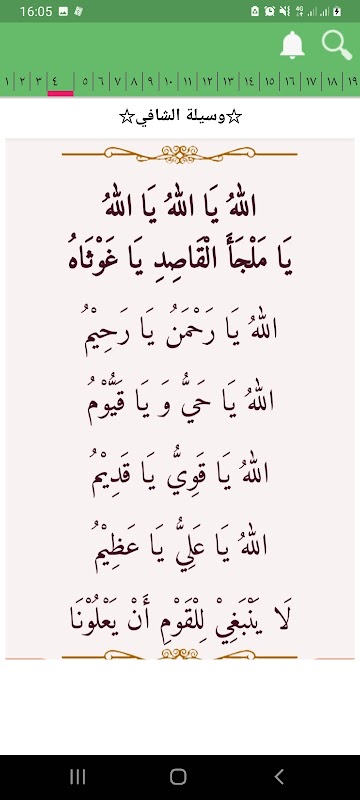 16:05
١ ٢ ٣ ٤ ٥ ٦ ٧ ٨ ٩ ١٠ ١١ ١٢ ١٣ ١٤ ١٥ ١٦ ١٧ ١٨ ١٩
☆وسيلة الشافي☆
اللهُ يَا اللهُ يَا اللهُ
يَا مَلْجَأَ الْقَاصِدِ يَا غَوْثَاهُ
اللهُ يَا رَحْمَنُ يَا رَحِيْمُ
اللهُ يَا حَيُّ وَ يَا قَيُّوْمُ
اللهُ يَا قَوِيُّ يَا قَدِيْمُ
اللهُ يَا عَلِيُّ يَا عَظِيْمُ
لَا يَنْبَغِيْ لِلْقَوْمِ أَنْ يَعْلُوْنَا